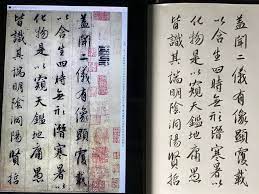 蓋聞二儀有像顯覆載
以含生四時無形潛寒暑以
化物是以窺天鑑地庸愚
皆識其端明陰洞陽賢哲
蓋聞二儀有像顯覆載
以含生四時無形潛寒暑以
化物是以窺天鑑地庸愚
皆識其端明陰洞陽賢哲